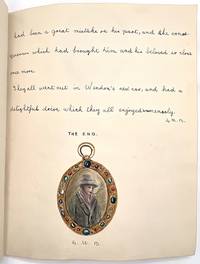 had been a great mistake on his part, and the cons-
equences which had brought him and his beloved so close
once more.
They all went out in Window's new car, and had a
delightful drive which they all enjoyed immensely.
THE END.